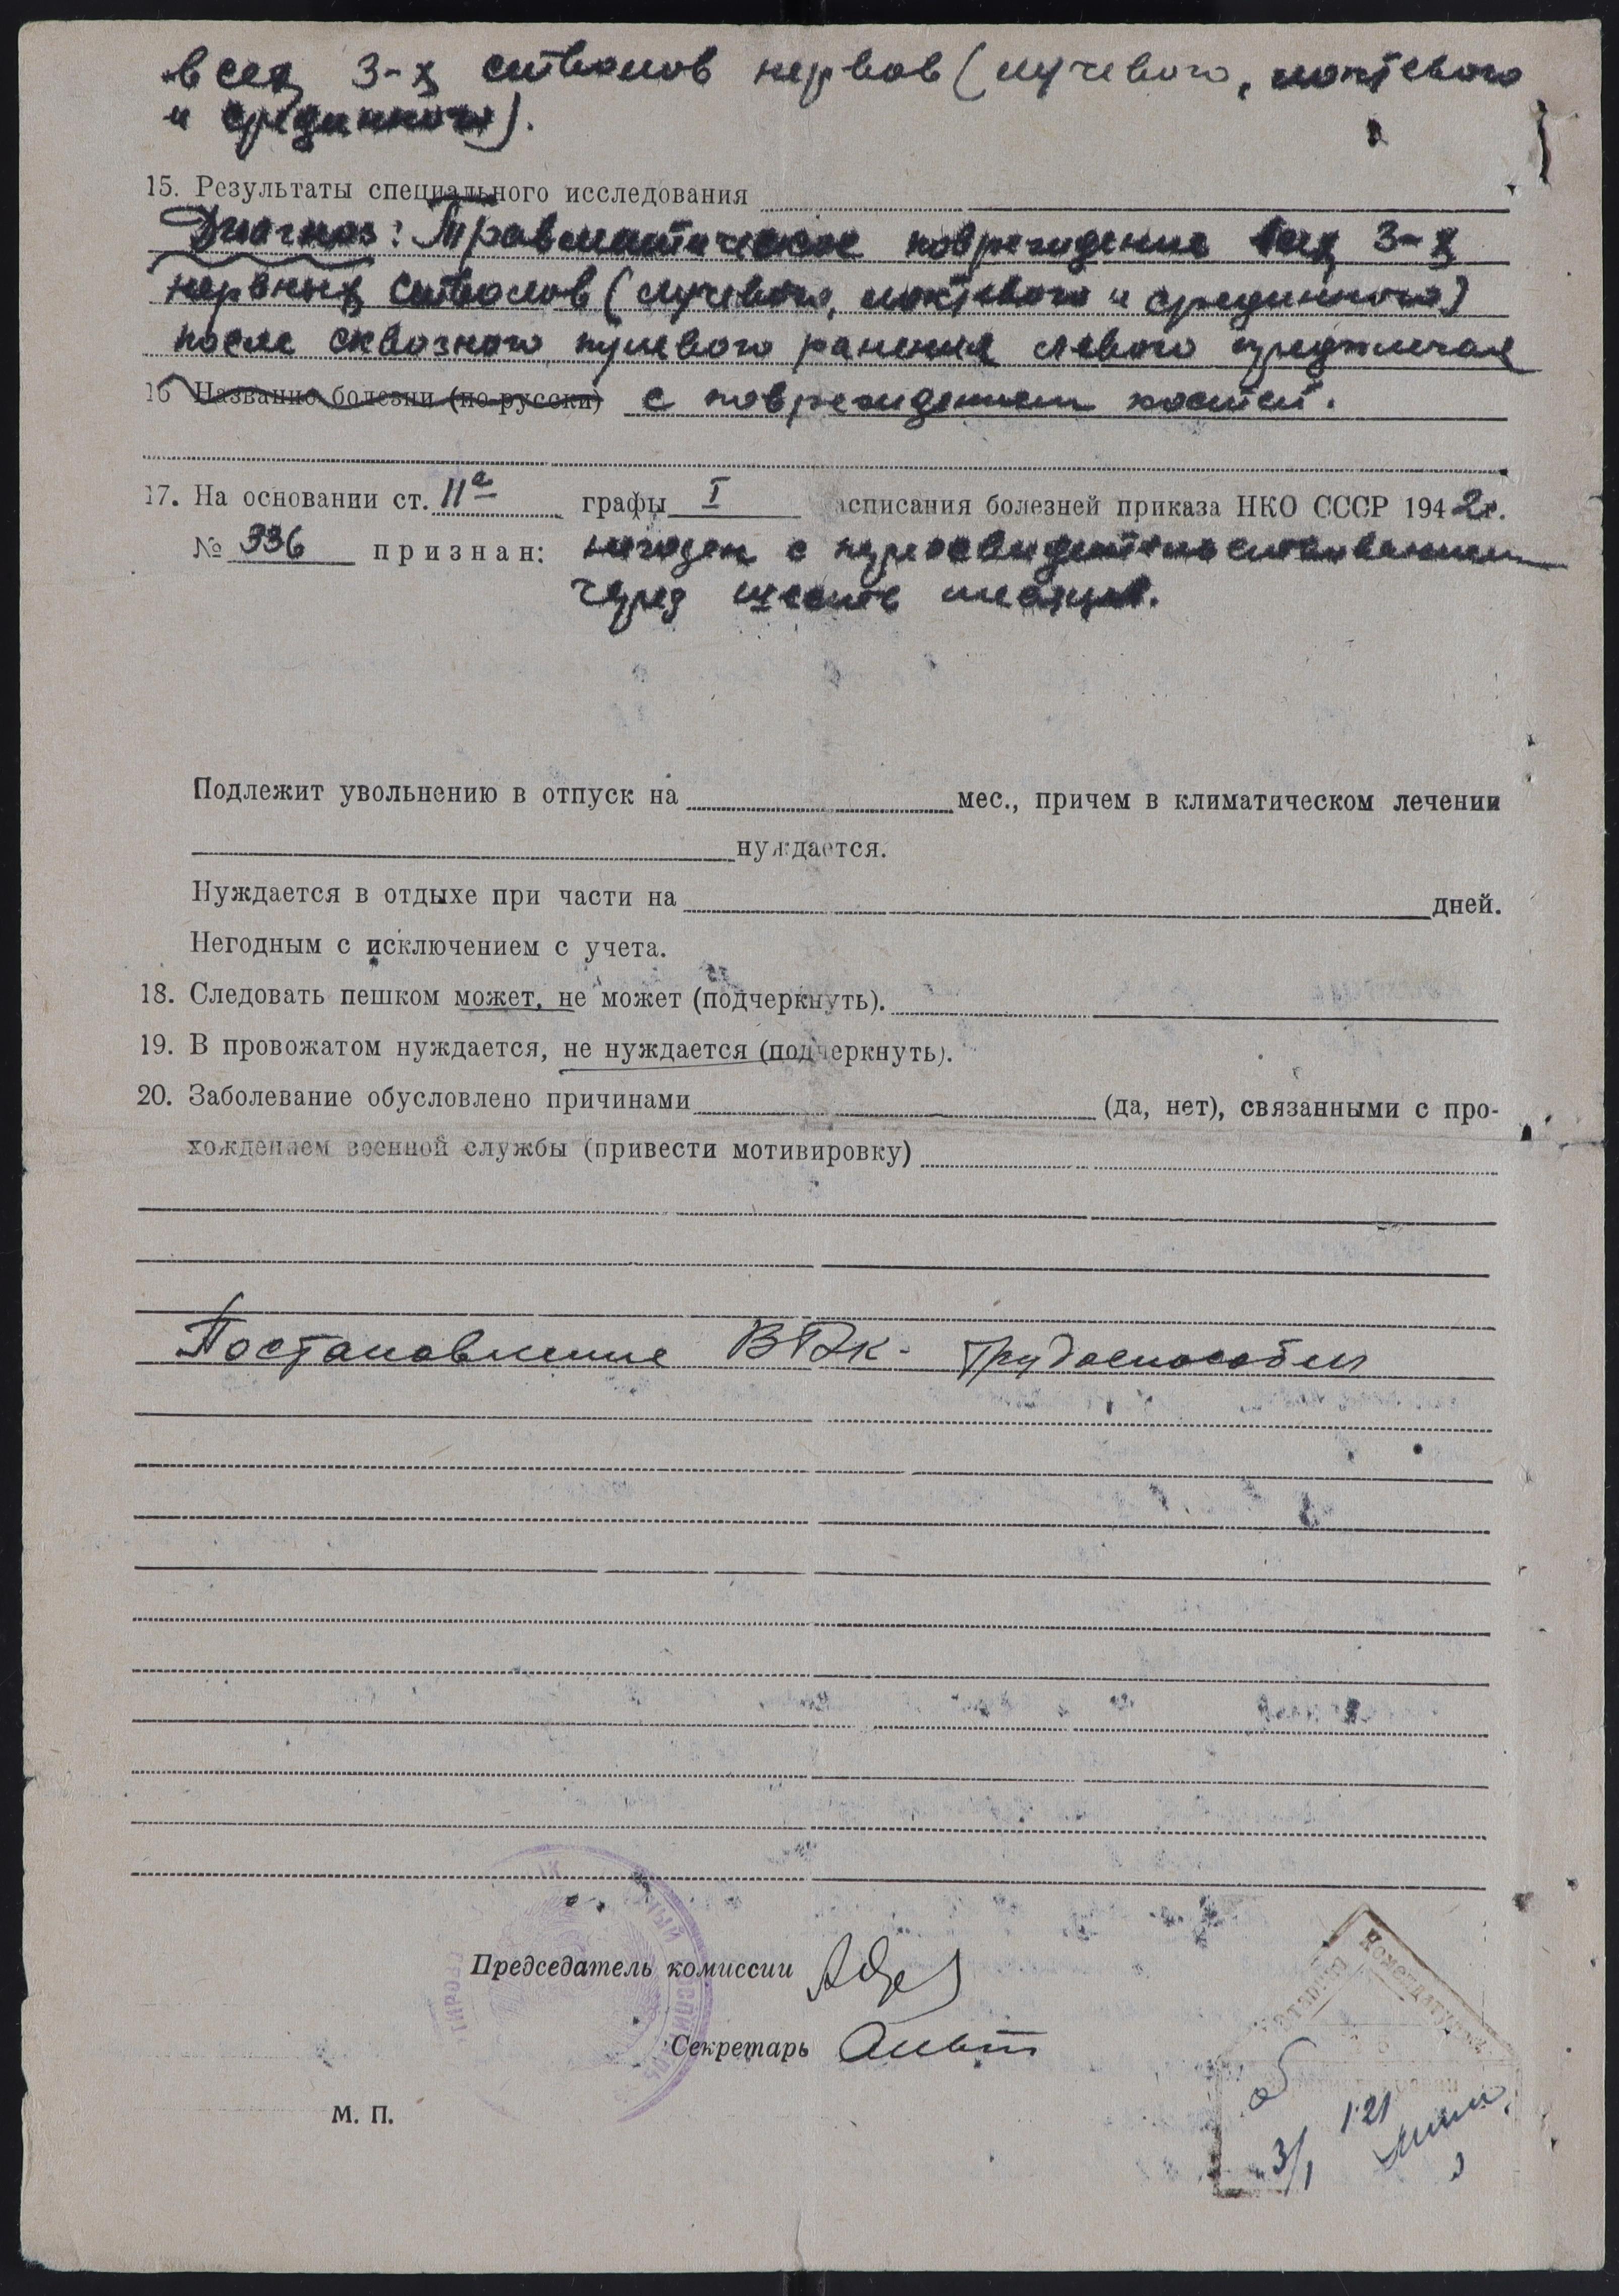 всех 3-х стволов нервов (лучевого, локтевого
и срединного).
15. Результаты специального исследования
Диагноз: Травматическое повреждение всех 3-х
нервных стволов (лучевого, локтевого и срединного)
после сквозного пулевого ранения левого предплечья
16 Название болезни (по-русски) с повреждением костей.
17. На основании ст. 11а графы I асписания болезней приказа НКО СССР 1942г.
№ 336 признан: негоден с переосвидетельствованием
через шесть месяцев.
Подлежит увольнению в отпуск на мес., причем в климатическом лечении
нуждается.
Нуждается в отдыхе при части на дней.
Негодным с исключением с учета.
18. Следовать пешком может, не может (подчеркнуть).
19. В провожатом нуждается, не нуждается (подчеркнуть).
20. Заболевание обусловлено причинами (да, нет), связанными с про-
хождением военной службы (привести мотивировку)
Постановление ВТЭК - трудоспособен
Председатель комиссии
Секретарь
М. П.
Комендатура
121
3/1